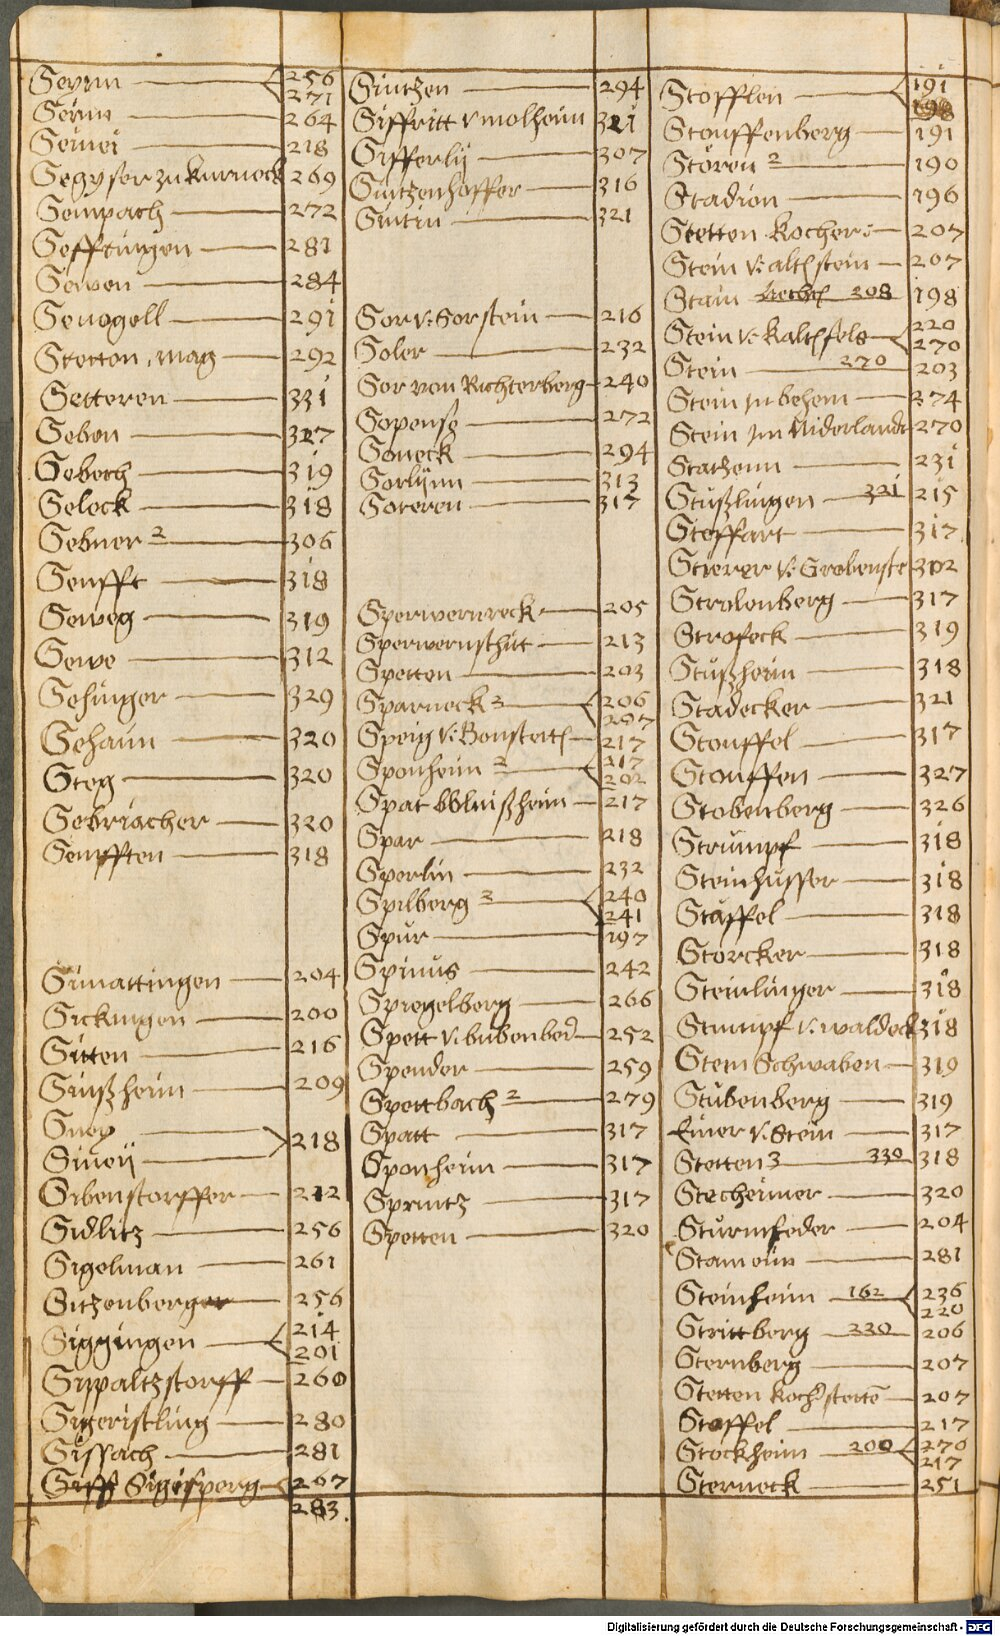 Seynn 256
271
Senn 264
Seinei 218
Segesser zu Kurneck 269
Sempach 272
Sefftingen 281
Sewen 284
Senogell 291
Stetton, mag 292
Setteren 331
Seben 327
Sebech 319
Seleck 318
Sebner 2 306
Senfft 318
Seweg 319
Sewe 312
Sehinger 329
Sehaim 320
Steg 320
Sebriacher 320
Sempfften 318
Simattingen 204
Sickingen 200
Sitten 216
Sinßheim 209
218
Sineÿ
Sibenstorffer 212
Sidlitz 256
Sigelman 261
Sitzenberger 256
Siggingen 214
201
Sippaltzstorff 260
Sigeristling 280
Sissach 281
267
283.
Sintzen 294
Siffritt v molheim 321
Sifferlÿ 307
Sintzenhoffer 316
Sintin 321
Sor v: Sorstein 216
Soler 232
Sor von Richterberg 240
Sopense 272
Soneck 294
Sorlÿnn 313
Soteren 317
Sperwersreck 205
Sperwersthut 213
Spetten 203
Sparneck 2 206
257
Speig v: Bonstett 217
Sponheim 2 217
202
Spat 217
Spar 218
Sperlin 232
Spilberg 2 240
241
Spur 197
Spinus 242
Spiegelberg 266
Spett v: bubenberd 252
Spender 259
Spettbach 2 279
Spatt 317
Sponheim 317
Sprintz 317
Spetten 320
Stofflen 191
198
Stouffenberg 191
Stören 2 190
Stadion 196
Stetten Kocher: 207
Stein v: altstein 207
Stain 208 198
Stein v: Kaltfels 220
270
Stein 270 203
Stein in behem 274
Stein im Niderlandt 270
Statzenn 231
Stüßlingen 321 215
Steffart 317
Stierer v: Grobenste 312
Strolenberg 317
Strofeck 319
Stüßheim 318
Stadecker 321
Stouffel 317
Stouffen 327
Stobenberg 326
Strümpf 318
Steinhüsser 318
Stäffel 318
Störcker 318
Steinlinger 318
Stumpf v: waldeck 318
Stein Schwaben 319
Stübenberg 319
Einer v: Stein 317
Stetten 3 330 318
Stecheimer 320
Sturmfeder 204
Stam 281
Steinheim 162 236
220
Strittberg 330 206
Sternberg 207
Stetten Koch stette 207
Staffel 217
Stockheim 200 270
217
Sterneck 251
Digitalisierung gefördert durch die Deutsche Forschungsgemeinschaft - DFG